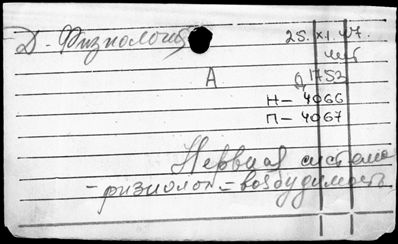 Д - Физиология
25. XI. 47.
А
д 1752
Н - 4066
П - 4067
Нервная система
- физиолог = возбудимость